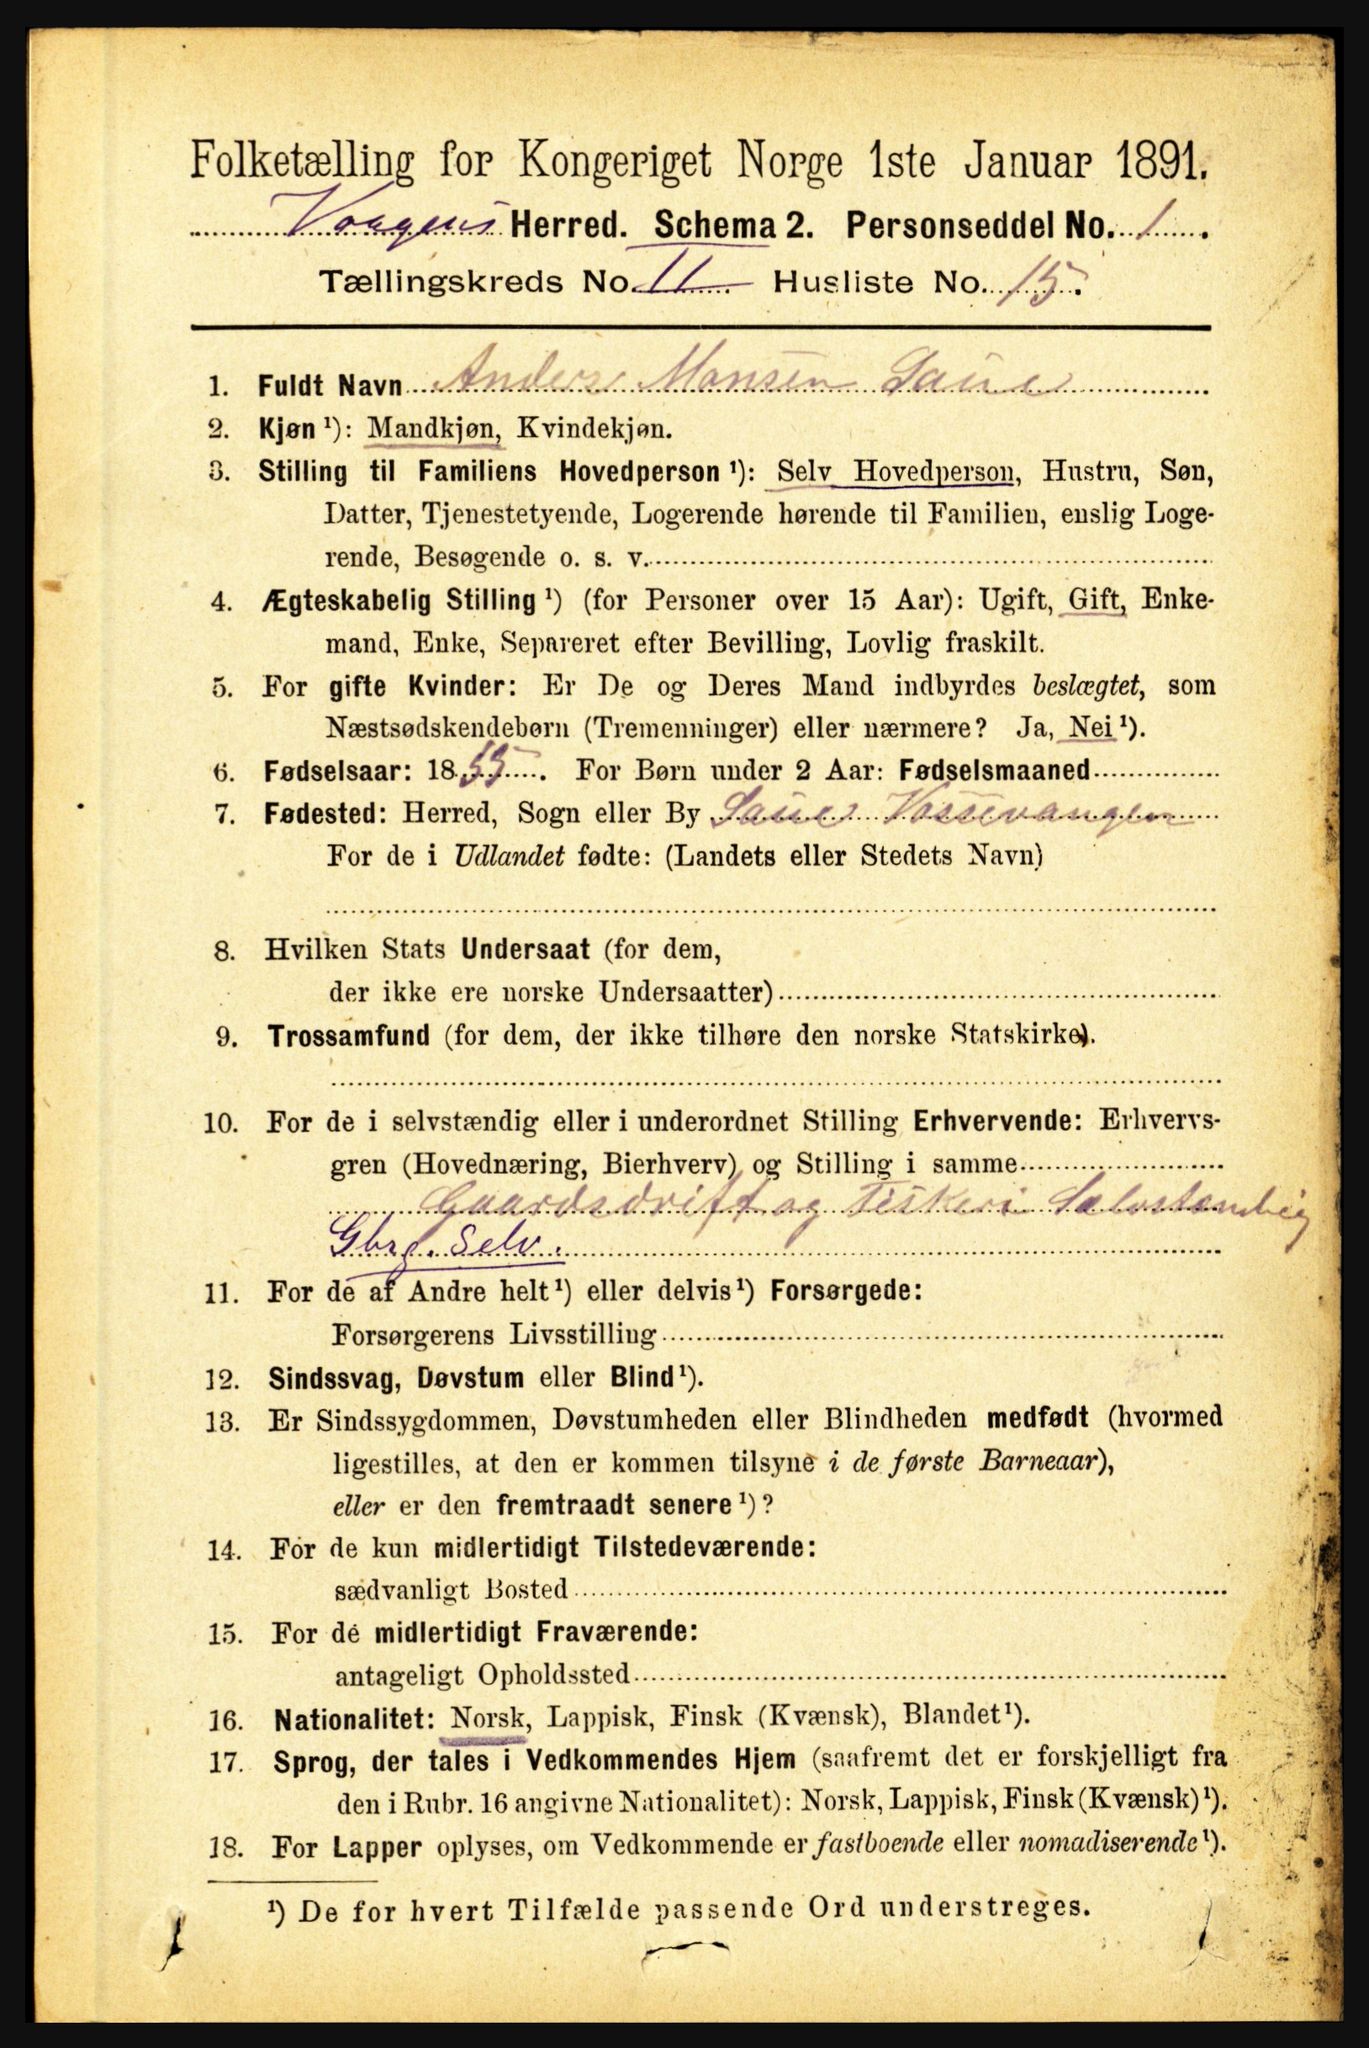 Folketælling for Kongeriget Norge 1ste Januar 1891.
Vaagens Herred. Schema 2. Personseddel No. 1.
Tællingskreds No. 11. Husliste No. 15.
1. Fuldt Navn Anders Monsen Saue
2. Kjøn ¹): Mandkjøn, Kvindekjøn.
3. Stilling til Familiens Hovedperson ¹): Selv Hovedperson, Hustru, Søn,
Datter, Tjenestetyende, Logerende hørende til Familien, enslig Loge-
rende, Besøgende o. s. v.
4. Ægteskabelig Stilling ¹) (for Personer over 15 Aar): Ugift, Gift, Enke-
mand, Enke, Separeret efter Bevilling, Lovlig fraskilt.
5. For gifte Kvinder: Er De og Deres Mand indbyrdes beslægtet, som
Næstsødskendebørn (Tremenninger) eller nærmere? Ja, Nei ¹).
6. Fødselsaar: 1855. For Børn under 2 Aar: Fødselsmaaned
7. Fødested: Herred, Sogn eller By Saue Vossevangen
For de i Udlandet fødte: (Landets eller Stedets Navn)
8. Hvilken Stats Undersaat (for dem,
der ikke ere norske Undersaatter)
9. Trossamfund (for dem, der ikke tilhøre den norske Statskirke).
10. For de i selvstændig eller i underordnet Stilling Erhvervende: Erhvervs-
gren (Hovednæring, Bierhverv) og Stilling i samme
Gaardsdrift og Fiskeri Selvstændig
Gbrg. Selv.
11. For de af Andre helt ¹) eller delvis ¹) Forsørgede:
Forsørgerens Livsstilling
12. Sindssvag, Døvstum eller Blind ¹).
13. Er Sindssygdommen, Døvstumheden eller Blindheden medfødt (hvormed
ligestilles, at den er kommen tilsyne i de første Barneaar),
eller er den fremtraadt senere ¹)?
14. For de kun midlertidigt Tilstedeværende:
sædvanligt Bosted
15. For de midlertidigt Fraværende:
antageligt Opholdssted
16. Nationalitet: Norsk, Lappisk, Finsk (Kvænsk), Blandet ¹).
17. Sprog, der tales i Vedkommendes Hjem (saafremt det er forskjelligt fra
den i Rubr. 16 angivne Nationalitet): Norsk, Lappisk, Finsk (Kvænsk) ¹).
18. For Lapper oplyses, om Vedkommende er fastboende eller nomadiserende ¹).
¹) De for hvert Tilfælde passende Ord understreges.